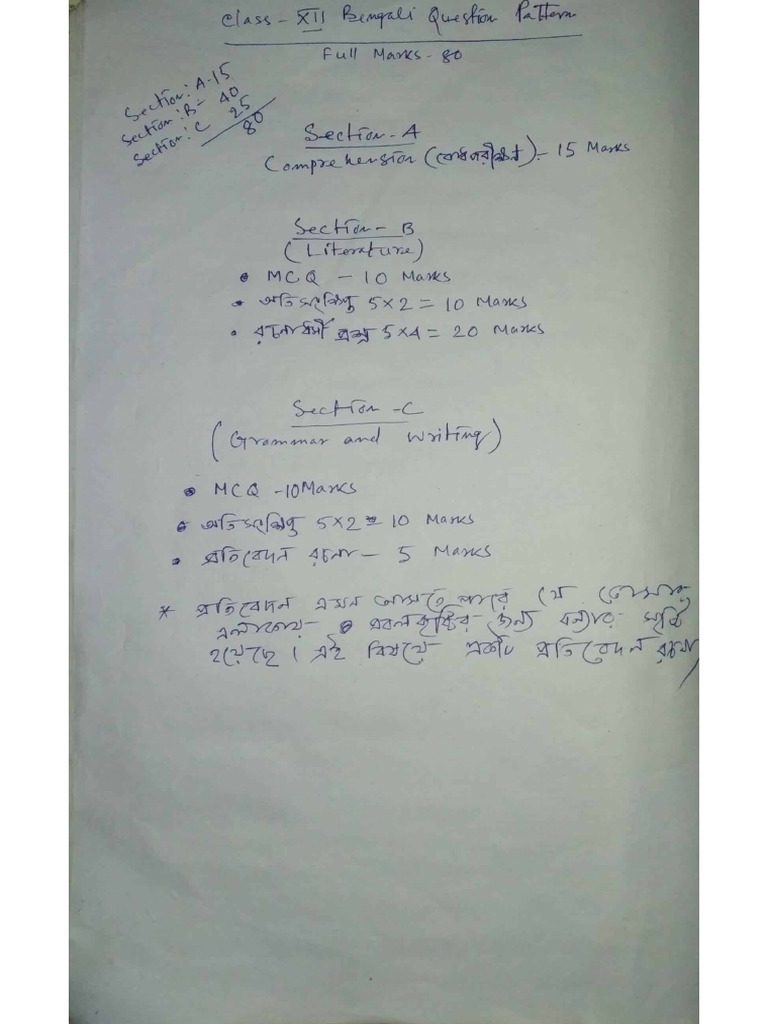 Class - XII Bengali Question Pattern
Full Marks - 80
Section: A - 15
Section: B - 40
Section: C 25
80
Section - A
Comprehension (বোধপরীক্ষণ) - 15 Marks
Section - B
(Literature)
• MCQ - 10 Marks
• অতিসংক্ষিপ্ত 5×2 = 10 Marks
• রচনাধর্মী প্রশ্ন 5×4 = 20 Marks
Section - C
(Grammar and writing)
• MCQ - 10 Marks
• অতিসংক্ষিপ্ত 5×2 = 10 Marks
• প্রতিবেদন রচনা - 5 Marks
* প্রতিবেদন এমন আসতে পারে যে তোমার
এলাকায় প্রবল বৃষ্টির জন্য বন্যার সৃষ্টি
হয়েছে। এই বিষয়ে একটি প্রতিবেদন রচনা